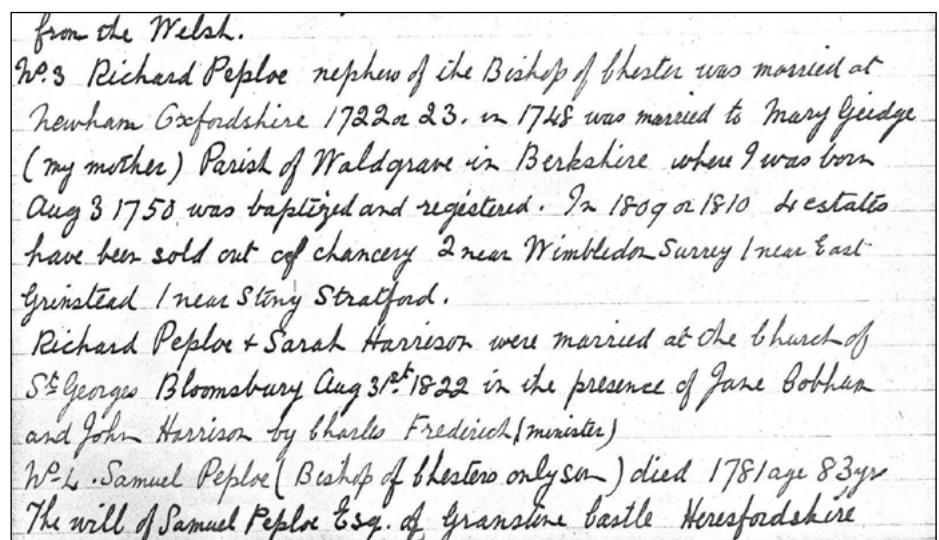 from the Welsh.
No. 3 Richard Peploe nephew of the Bishop of Chester was married at
Newham Oxfordshire 1722 or 23. in 1748 was married to Mary Geidge
(my mother) Parish of Waldgrave in Berkshire where I was born
Aug 3 1750 was baptized and registered. In 1809 or 1810 4 estates
have been sold out of chancery 2 near Wimbledon Surrey 1 near East
Grinstead 1 near Stony Stratford.
Richard Peploe + Sarah Harrison were married at the Church of
St Georges Bloomsbury Aug 31st 1822 in the presence of Jane Cobham
and John Harrison by Charles Frederich (minister)
No 4. Samuel Peploe (Bishop of Chesters only son) died 1781 age 83 yrs
The will of Samuel Peploe Esq. of Granstine Castle Heresfordshire